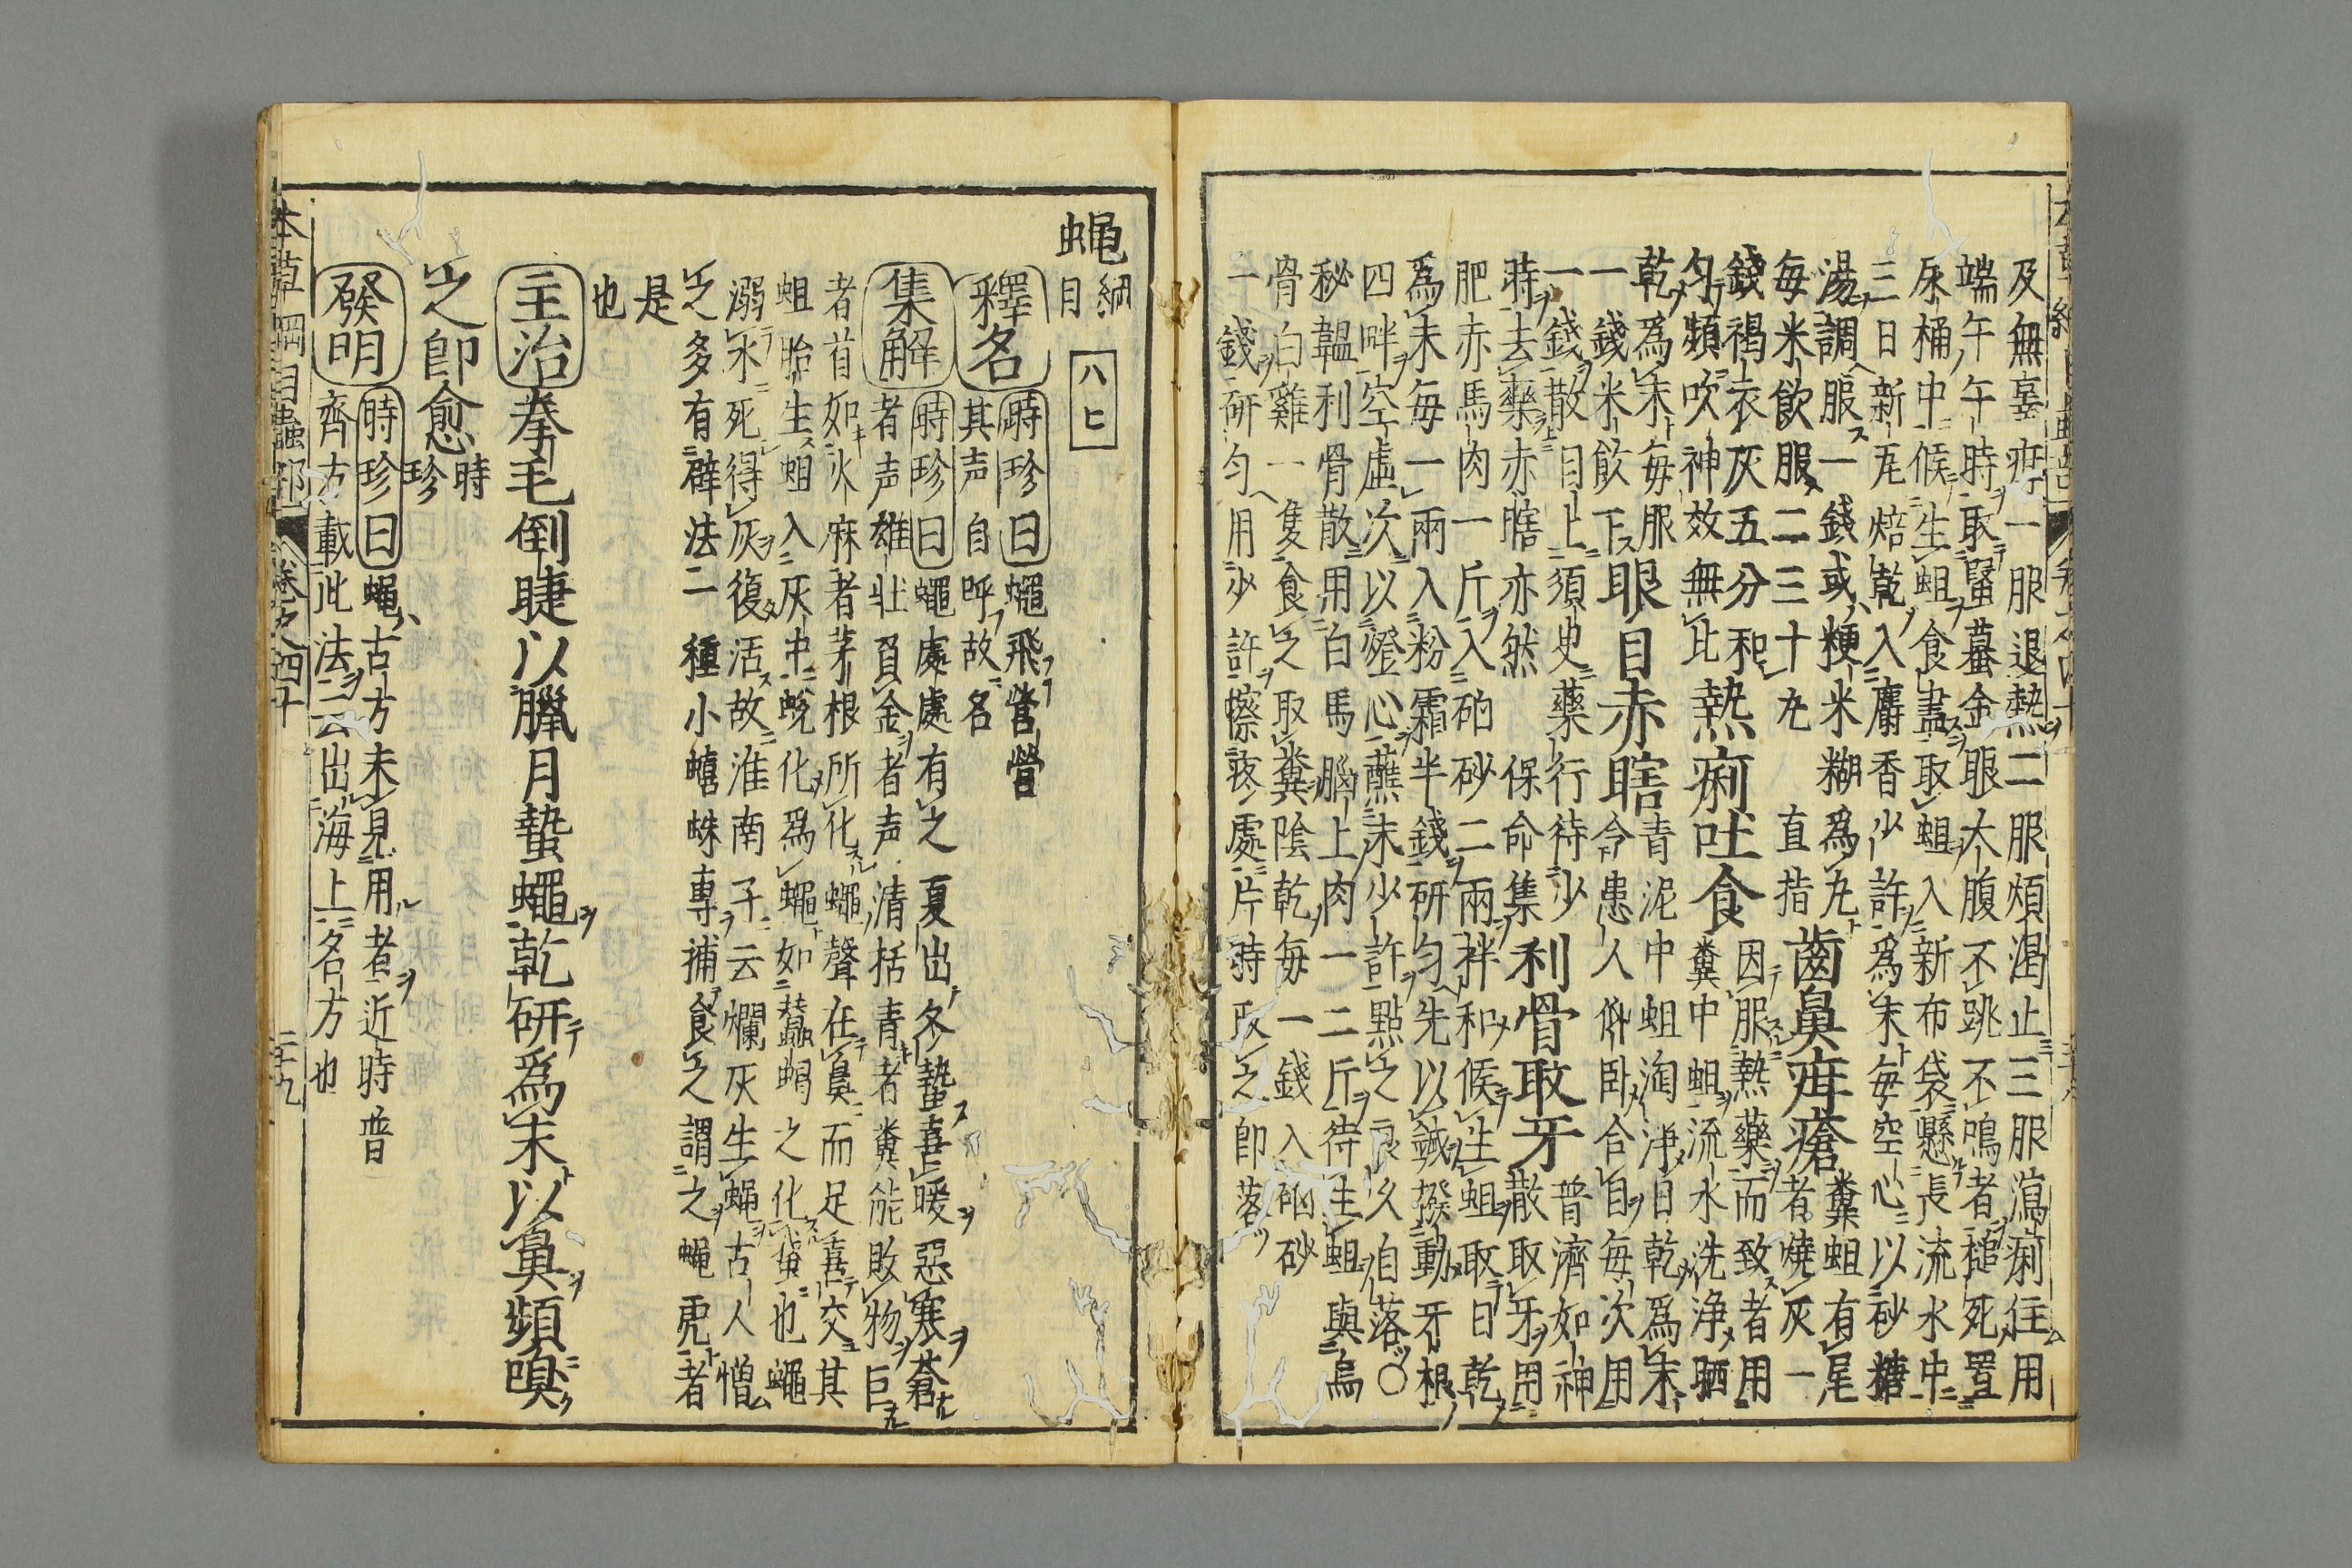 及無辜疳一服退熱二服煩渴止三服瀉痢住用
端午午時取蟾蟇金眼大腹不跳不鳴者槌死置
尿桶中候生蛆食盡取蛆入新布袋懸長流水中
三日新瓦焙乾入麝香少許為末每空心以砂糖
湯調服一錢或粳米糊為丸
每米飲服二三十丸 直指 齒鼻疳瘡 糞蛆有尾者燒灰一
錢褐衣灰五分和匀頻吹神效無比 熱痢吐食 因服熱藥而致者用
糞中蛆流水洗浄晒乾為末每服
一錢米飲下 眼目赤瞎 青泥中蛆淘浄日乾為末
令患人仰臥合目每次用
一錢散目上須臾藥行待少
時去藥赤瞎亦然 保命集 利骨取牙 普濟如神散取牙用
肥赤馬肉一斤入硇砂二兩拌和候生蛆取日乾
為末每一兩入粉霜半錢研匀先以鍼撥動牙根
四畔空虛次以燈心蘸末少許點之良久自落〇
秘韞利骨散用白馬腦上肉一二斤待生蛆與烏
骨白雞一隻食之取糞陰乾每一錢入硇砂
一錢研匀用少許擦疼處片時取之即落
蠅 綱目
釋名 時珍曰蠅飛營營
其声自呼故名
集解 時珍曰蠅處處有之夏出冬蟄喜暖惡寒蒼
者声雄壯負金者声清括青者糞能敗物巨
者首如火麻者茅根所化蠅聲在鼻而足喜交其
蛆胎生蛆入灰中蛻化為蠅如蠶蝎之化蛾也蠅
溺水死得灰復活故淮南子云爛灰生蠅古人憎
之多有辟法一種小蟢蛛專捕食之謂之蠅虎者
是也
主治 拳毛倒睫以臘月蟄蠅乾研為末以鼻頻嗅
之即愈 時珍
發明 時珍曰蠅古方未見用者近時普
齊方載此法云出海上名方也
本草綱目蟲部 卷之四十 二十九